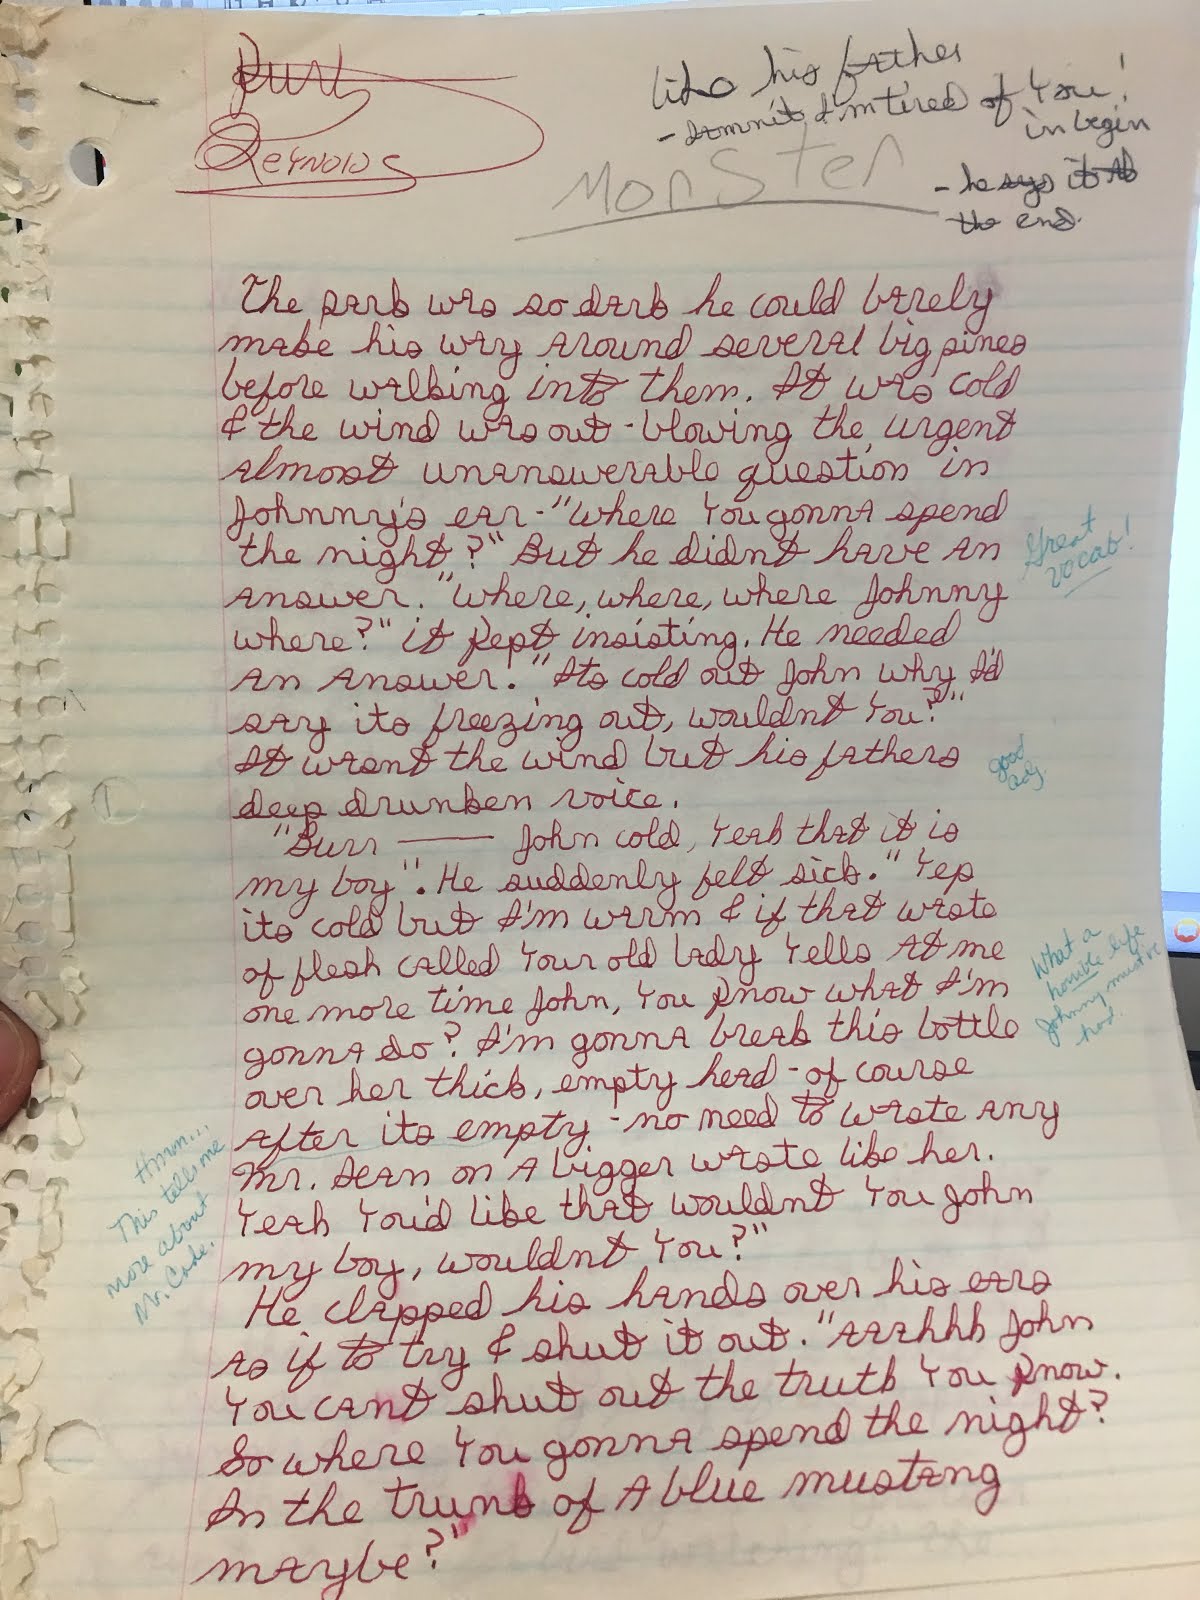 Burt
Reynolds
like his father
- Damnit I'm tired of You!
in begin
- he says it at
the end.
Monster
The park was so dark he could barely
make his way around several big pines
before walking into them. It was cold
& the wind was out - blowing the urgent
almost unanswerable question in
Johnny's ear - "Where You gonna spend
the night?" But he didnt have an
answer. "Where, where, where Johnny
where?" it kept insisting. He needed
an answer. "Its cold out John why I'd
say its freezing out, wouldnt You?"
It wasnt the wind but his fathers
deep drunken voice.
"Burr —— John cold, Yeah that it is
my boy". He suddenly felt sick. "Yep
its cold but I'm warm & if that waste
of flesh called Your old lady Yells at me
one more time John, You know what I'm
gonna do? I'm gonna break this bottle
over her thick, empty head - of course
after its empty - no need to waste any
Mr. Bean on a bigger waste like her.
Yeah You'd like that wouldnt You John
my boy, wouldnt You?"
He clapped his hands over his ears
as if to try & shut it out. "Aaahhh John
You cant shut out the truth You know.
So where You gonna spend the night?
In the trunk of a blue mustang
maybe?"
Great
vocab!
good
adj.
What a
horrible life
Johnny must've
had.
Hmm...
This tells me
more about
Mr. Cade.
1